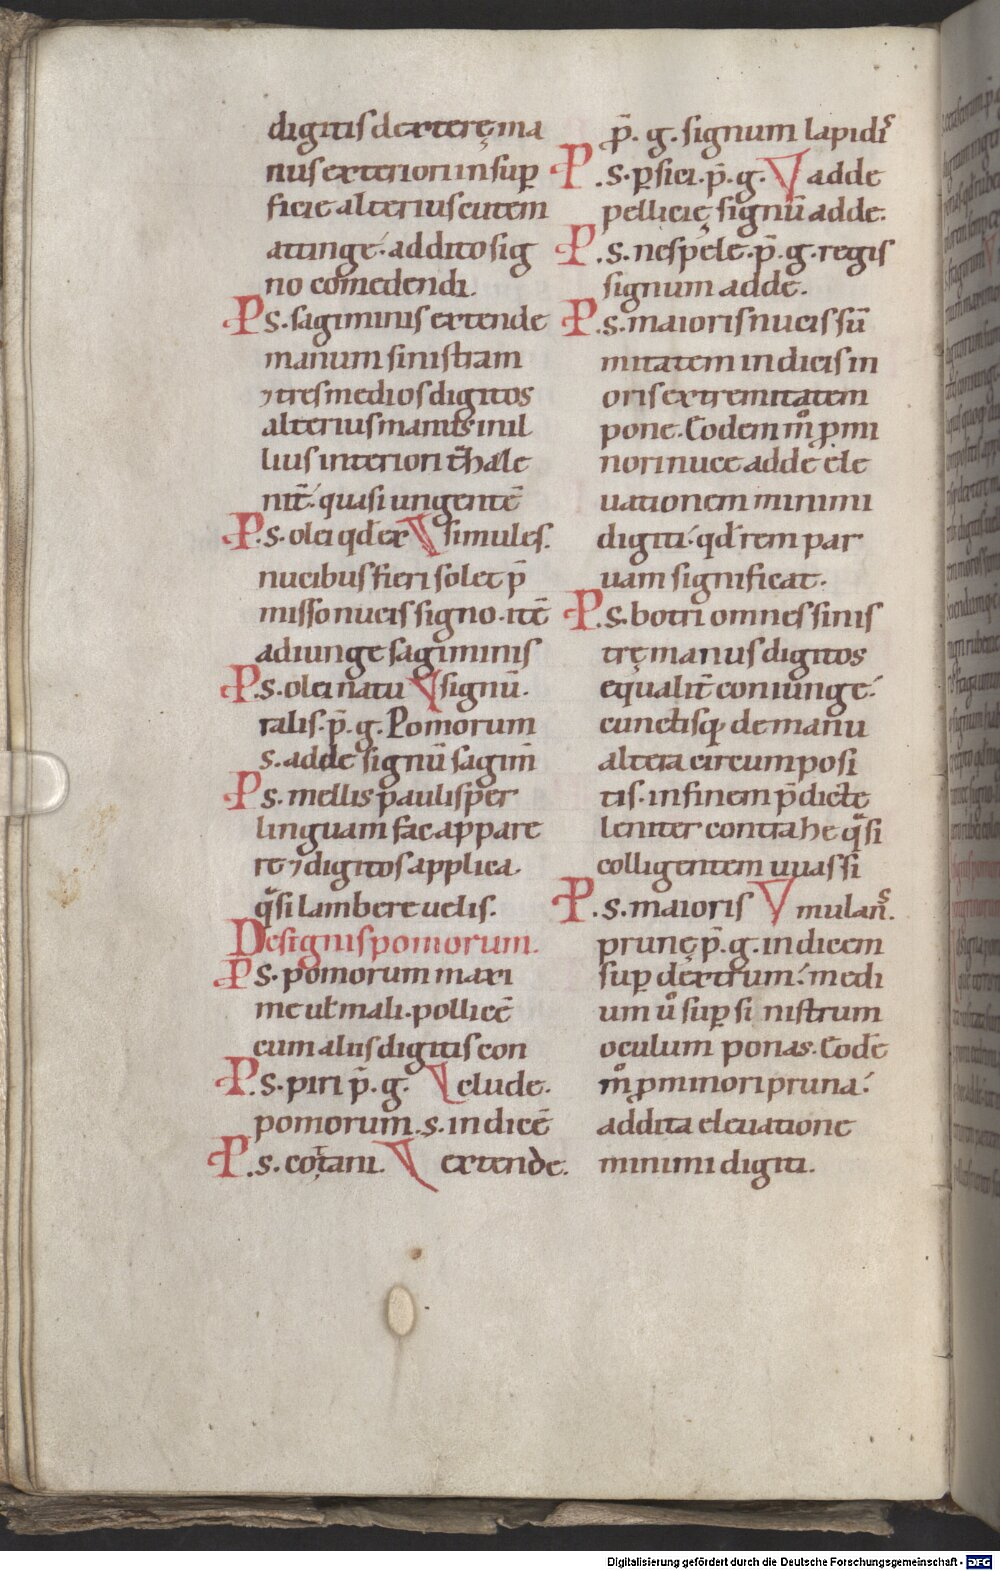 digitis dexterę ma
nus exteriori insup̱
ficie alterius cutem
attinge. addito sig
no comedendi.
P s. sagiminis extende
manum sinistram
⁊ tres medios digitos
alterius manus in il
lius interiori t̄hale
nit̄. quasi ungentē
P. s. olei qđ ex simules.
nucibus fieri solet p̄
misso nucis signo. itē
adiunge sagiminis
P. s. olei natu signū.
ralis. p̄. g. Pomorum
s. adde signū sagim̄
P s. mellis paulisper
linguam fac appare
re ⁊ digitos applica
qͣsi lambere uelis.
De signis pomorum.
P s. pomorum maxi
me ut mali. pollicē
cum aliis digitis con
P. s. piri p̄. g. clude.
pomorum. s. indicē
P. s. cot̄ani. extende.
p̄. g. signum lapidꝭ
P. s. p̱sici. p̄. g. adde
pellicię signū adde.
P. s. nespele. p̄. g. regis
signum adde.
P. s. maioris nucis sū
mitatem indicis in
oris extremitatem
pone. Eodem mͦ p̱ mi
nori nuce adde ele
uationem minimi
digiti. qđ rem par
uam significat.
P. s. botri omnes sinis
trę manus digitos
equalit̄ coniunge.
cunctisq; de manu
altera circumposi
tis. in finem p̄dicte
leniter contrahe qͣsi
colligentem uuas si
P. s. maioris mulanꝭ.
prunę p̄. g. indicem
sup̱ dextrum. medi
um uͦ sup̱ sinistrum
oculum ponas. Eodē
mͦ p̱ minori pruna.
addita eleuatione
minimi digiti.
Digitalisierung gefördert durch die Deutsche Forschungsgemeinschaft - DFG